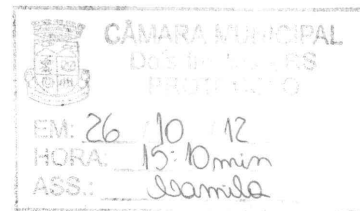 CÂMARA MUNICIPAL
RS
PROTOCOLO
EM: 26 / 10 / 12
HORA: 15:10min
ASS.: Camila